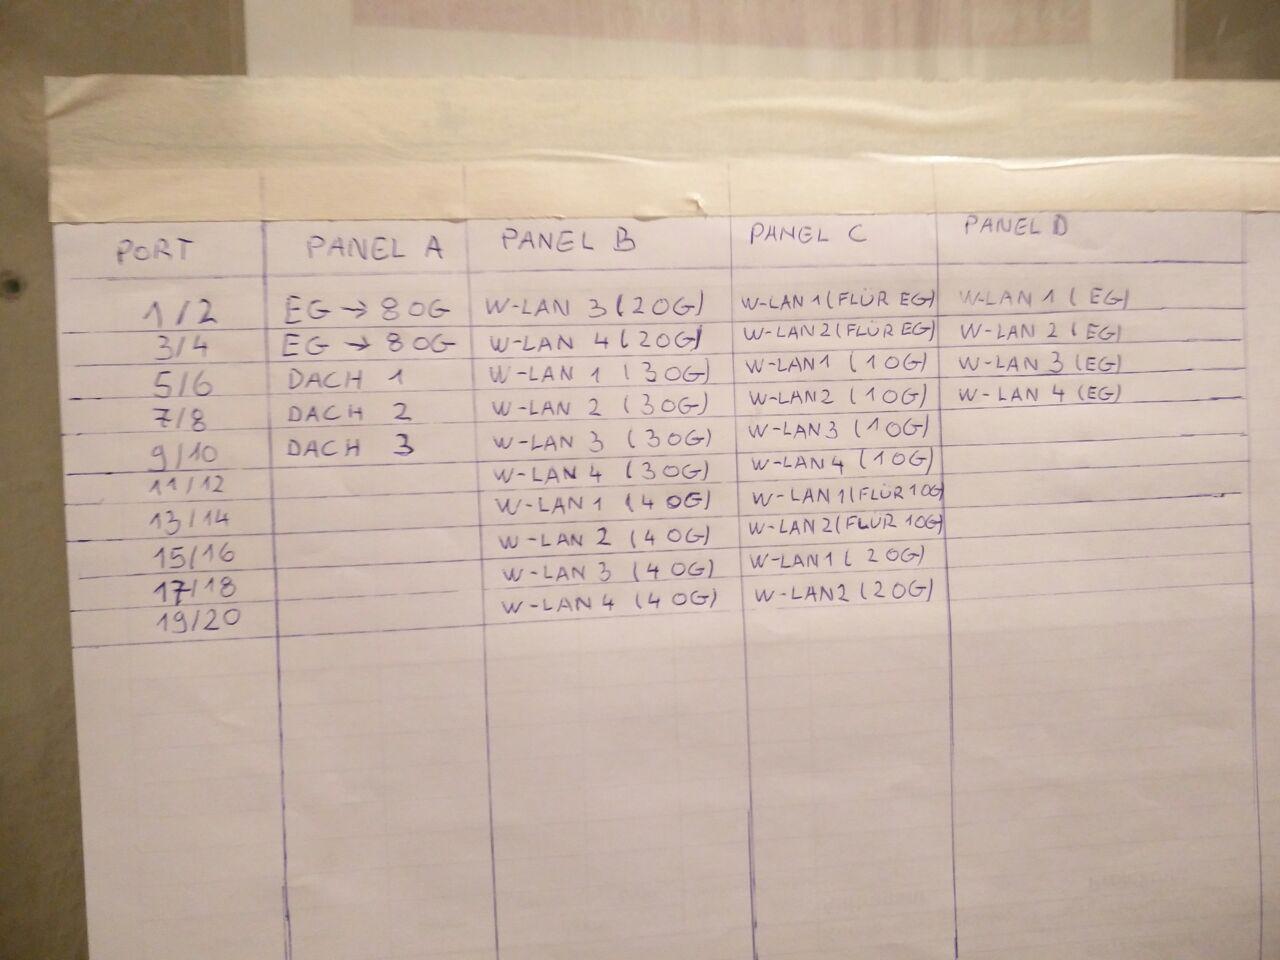 PORT PANEL A PANEL B PANEL C PANEL D
1/2 EG → 8 OG W-LAN 3 (2 OG) W-LAN 1 (FLÜR EG) W-LAN 1 (EG)
3/4 EG → 8 OG W-LAN 4 (2 OG) W-LAN 2 (FLÜR EG) W-LAN 2 (EG)
5/6 DACH 1 W-LAN 1 (3 OG) W-LAN 1 (1 OG) W-LAN 3 (EG)
7/8 DACH 2 W-LAN 2 (3 OG) W-LAN 2 (1 OG) W-LAN 4 (EG)
9/10 DACH 3 W-LAN 3 (3 OG) W-LAN 3 (1 OG)
11/12 W-LAN 4 (3 OG) W-LAN 4 (1 OG)
13/14 W-LAN 1 (4 OG) W-LAN 1 (FLÜR 1 OG)
15/16 W-LAN 2 (4 OG) W-LAN 2 (FLÜR 1 OG)
17/18 W-LAN 3 (4 OG) W-LAN 1 (2 OG)
19/20 W-LAN 4 (4 OG) W-LAN 2 (2 OG)